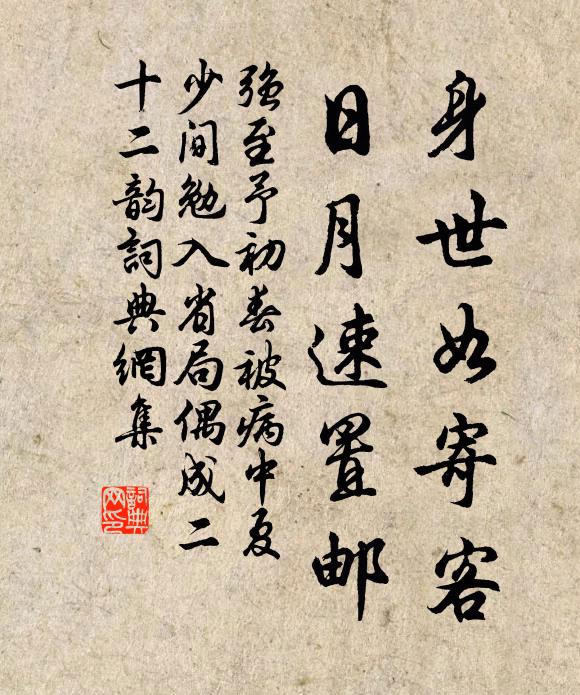 身世如寄客
日月速置邮
强至予初春被病中夏
少间勉入省局偶成二
十二韵詞典網集
詞典
网印